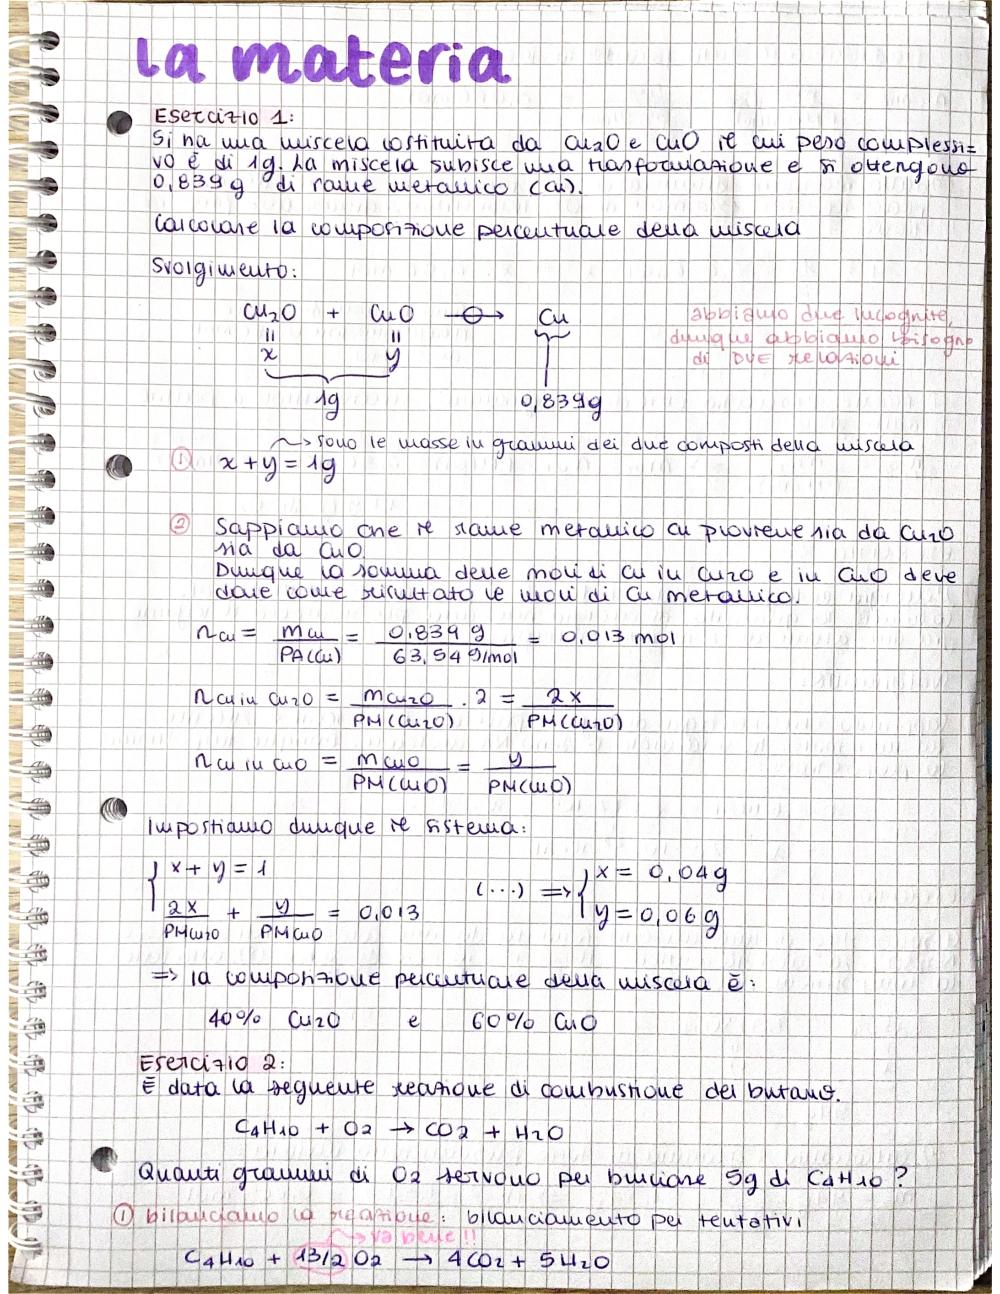 la materia
Esercizio 1:
Si ha una miscela costituita da Cu₂O e CuO il cui peso complessi=
vo è di 1g. La miscela subisce una trasformazione e si ottengono
0,839 g di rame metallico (Cu).
Calcolare la composizione percentuale della miscela
Svolgimento:
Cu₂O + CuO → Cu
abbiamo due incognite,
dunque abbiamo bisogno
di DUE relazioni
= =
x y
1g 0,839g
→ sono le masse in grammi dei due composti della miscela
① x + y = 1g
② Sappiamo che il rame metallico Cu proviene sia da Cu₂O
sia da CuO.
Dunque la somma delle moli di Cu in Cu₂O e in CuO deve
dare come risultato le moli di Cu metallico.
nCu = mCu/PA(Cu) = 0,839 g/63,54 g/mol = 0,013 mol
nCu in Cu₂O = mCu₂O/PM(Cu₂O) · 2 = 2x/PM(Cu₂O)
nCu in CuO = mCuO/PM(CuO) = y/PM(CuO)
Impostiamo dunque il sistema:
{ x + y = 1
2x/PMCu₂O + y/PMCuO = 0,013
(...) ⇒ { x = 0,04g
y = 0,06g
⇒ la composizione percentuale della miscela è:
40% Cu₂O e 60% CuO
Esercizio 2:
È data la seguente reazione di combustione del butano.
C₄H₁₀ + O₂ → CO₂ + H₂O
Quanti grammi di O₂ servono per bruciare 5g di C₄H₁₀?
① bilanciamo la reazione: bilanciamento per tentativi
→ va bene!!
C₄H₁₀ + 13/2 O₂ → 4CO₂ + 5H₂O